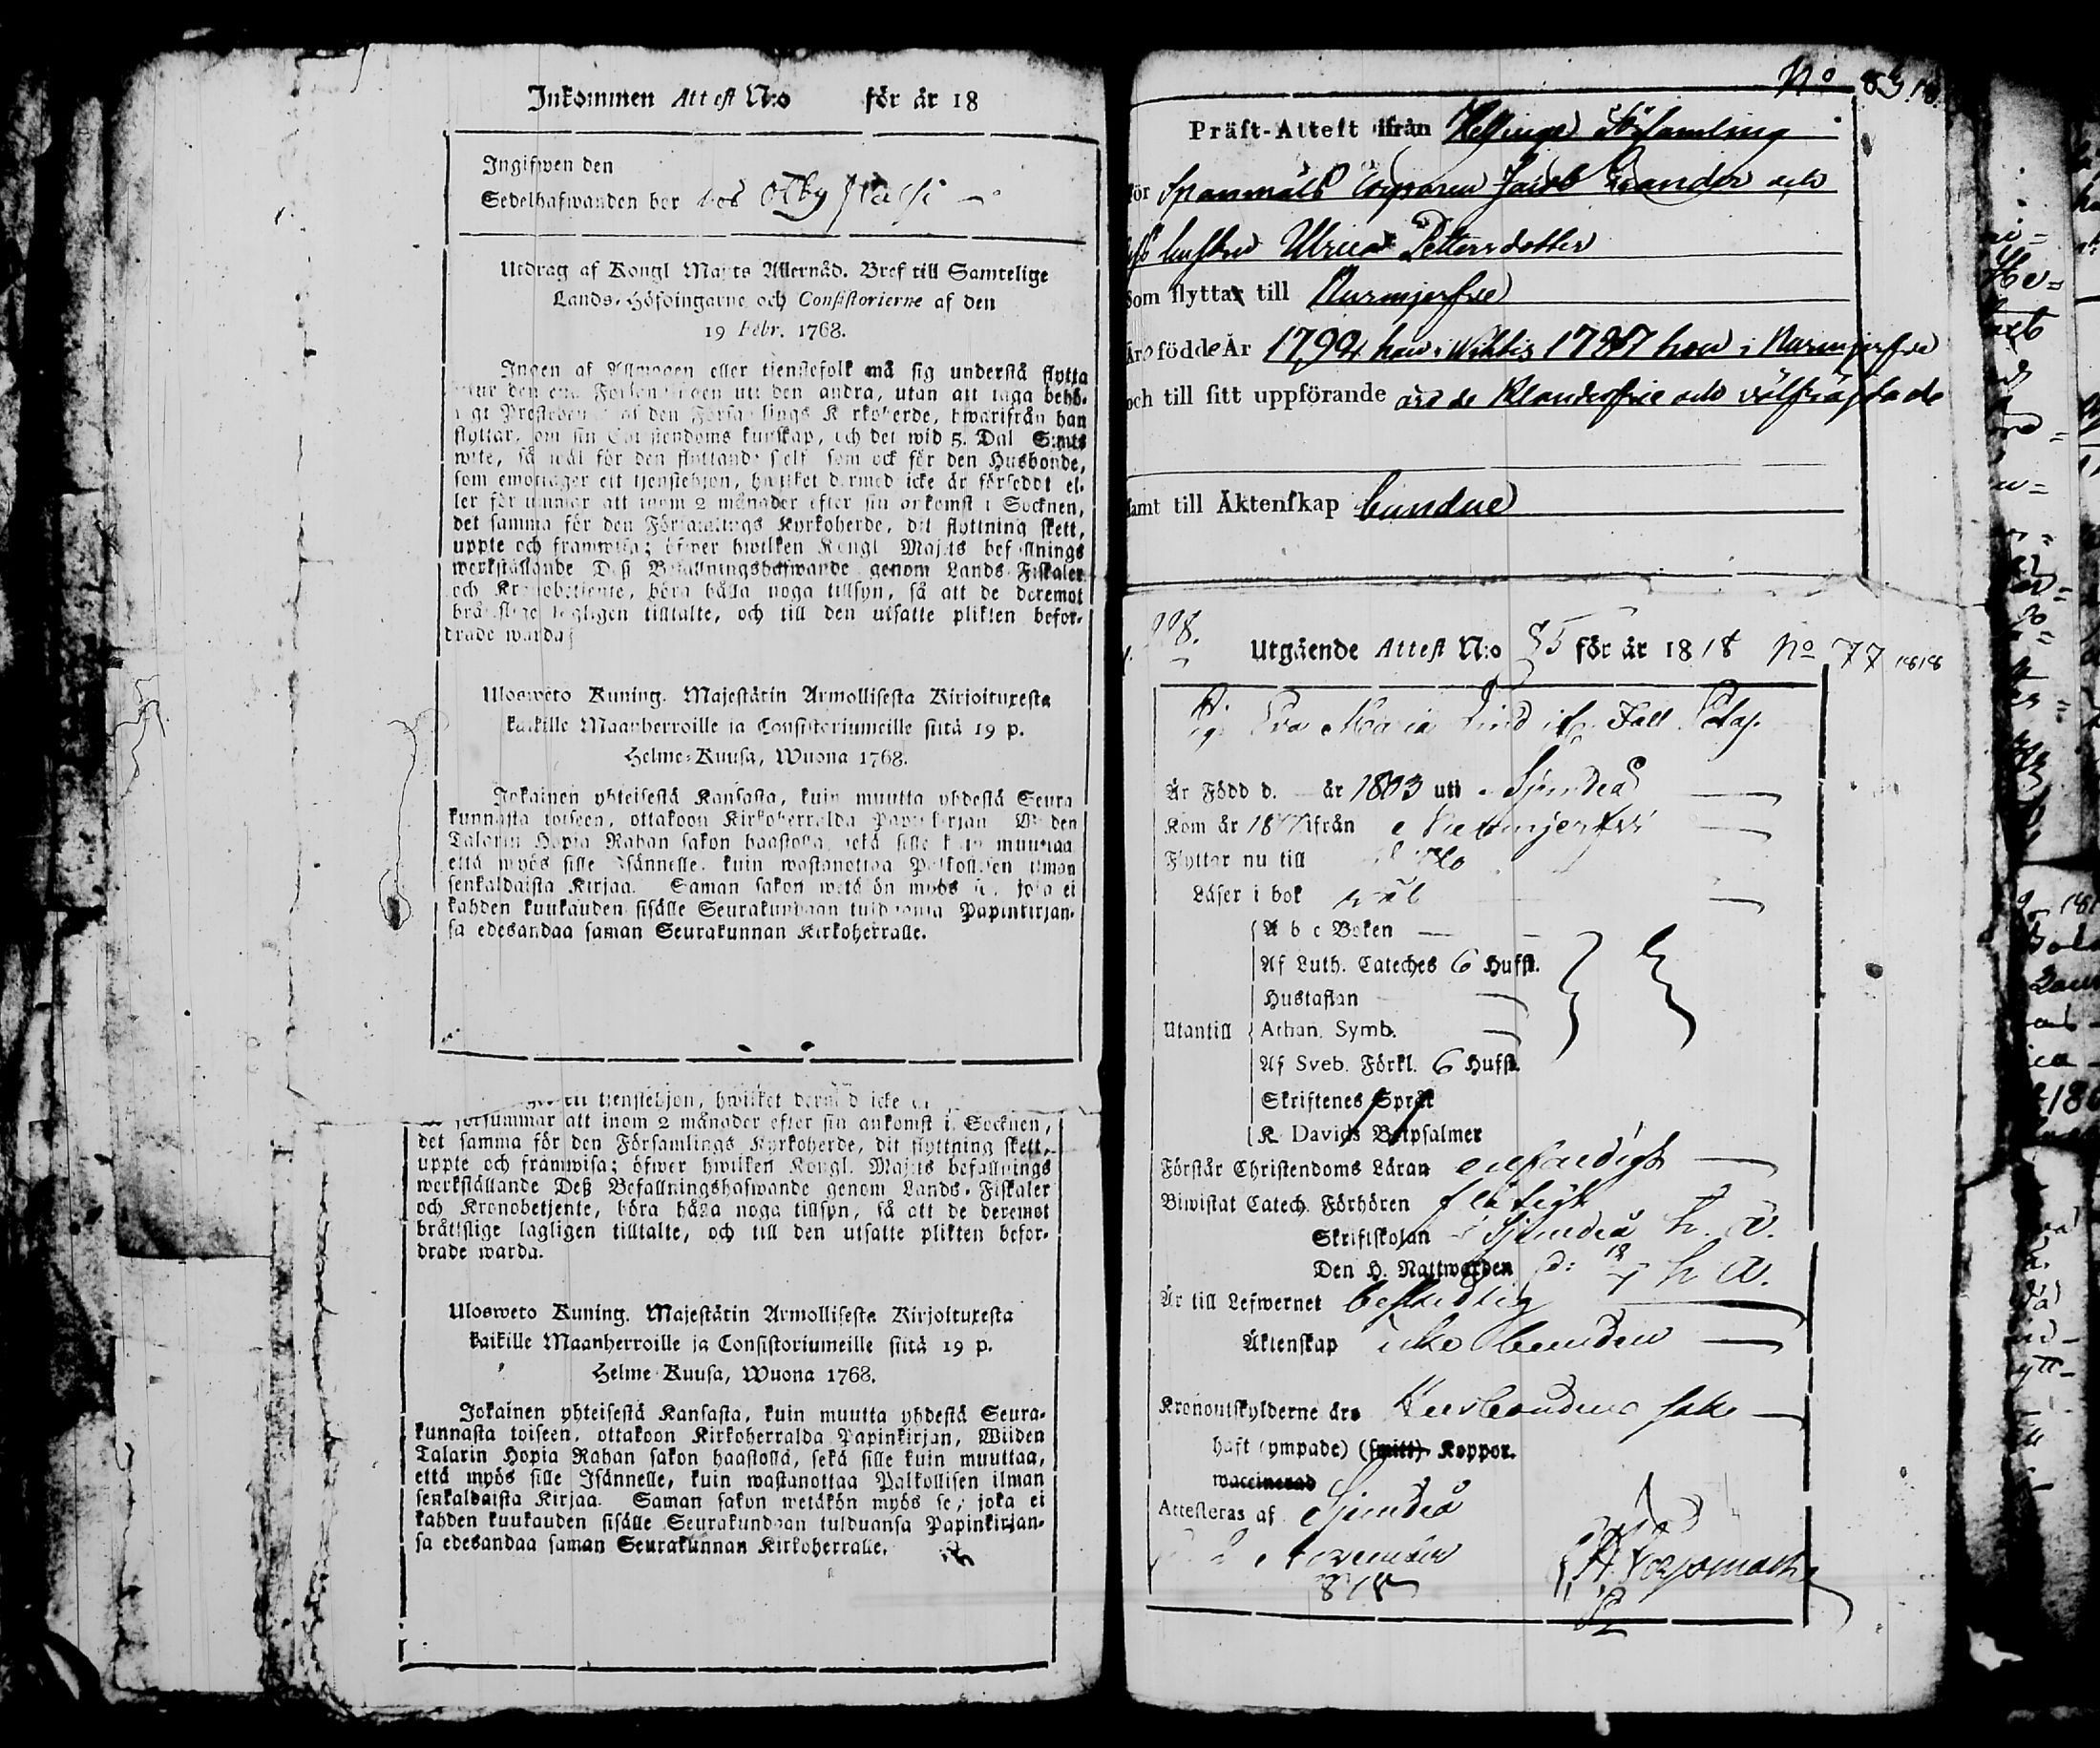 Inkommen Attest N:o för år 18
Ingifwen den
Sedelhafwanden bor hos
Utdrag af Kongl Maj:ts Allernåd. Bref till Samtelige
Lands-Höfdingarne och Consistorierne af den
19 Febr. 1768.
Ingen af Allmogen eller tjenstefolk må sig understå flytta
utur den ena Församlingen uti den andra, utan att taga behö-
rigt Prestebewis af den Församlings Kyrkoherde, hwarifrån han
flyttar, om sin Christendoms kunskap, och det wid 5. Dal S:mts
wite, så wäl för den flyttande sielf som ock för den Husbonde,
som emottager ett tjenstehjon, hwilket dermed icke är försedt el-
ler försummar att inom 2 månader efter sin ankomst i Socknen,
det samma för den Församlings Kyrkoherde, dit flyttning skett,
uppte och framwisa; öfwer hwilken Kongl Maj:ts befallnings
werkställande Deß Befallningshafwande genom Lands-Fiskaler
och Kronobetjente, böra hålla noga tillsyn, så att de deremot
bråtslige lagligen tilltalte, och till den utsatte plikten befor-
drade warda
Ulosweto Kuning. Majestätin Armollisesta Kirjoituxesta
kaikille Maanherroille ja Consistoriumeille siitä 19 p.
Helme-Kuusa, Wuona 1768.
Jokainen yhteisestä Kansasta, kuin muutta yhdestä Seura
kunnasta toiseen, ottakoon Kirkoherralda Papinkirjan Wiiden
Talarin Hopia Rahan sakon haastolla, sekä sille kuin muuttaa
että myös sille Isännelle, kuin wastanottaa Palkollisen ilman
senkaldaista Kirjaa. Saman sakon wetäkön myös se, joka ei
kahden kuukauden sisälle Seurakundaan tulduansa Papinkirjan-
sa edesandaa saman Seurakunnan Kirkoherralle.
tjenstehjon, hwilket dermed icke
försummar att inom 2 månader efter sin ankomst i Socknen,
det samma för den Församlings Kyrkoherde, dit flyttning skett,
uppte och framwisa; öfwer hwilken Kongl. Maj:ts befallnings
werkställande Deß Befallningshafwande genom Lands-Fiskaler
och Kronobetjente, böra hålla noga tillsyn, så att de deremot
bråtslige lagligen tilltalte, och till den utsatte plikten befor-
drade warda.
Ulosweto Kuning. Majestätin Armollisesta Kirjoituxesta
kaikille Maanherroille ja Consistoriumeille siitä 19 p.
Helme-Kuusa, Wuona 1768.
Jokainen yhteisestä Kansasta, kuin muutta yhdestä Seura-
kunnasta toiseen, ottakoon Kirkoherralda Papinkirjan, Wiiden
Talarin Hopia Rahan sakon haastolla, sekä sille kuin muuttaa,
että myös sille Isännelle, kuin wastanottaa Palkollisen ilman
senkaldaista Kirjaa. Saman sakon wetäkön myös se, joka ei
kahden kuukauden sisälle Seurakundaan tulduansa Papinkirjan-
sa edesandaa saman Seurakunnan Kirkoherralle.
No 83
Präst-Attest ifrån Helsinge Församling
för Corporen Jacob Grander och
hustru Ulrica Pettersdotter
Som flytta till Nurmjerfwi
Äro födde År 1794 han i Wihtis 1787 hon i Nurmjerfwi
och till sitt uppförande äro de Klanderfrie och välfrägdade
samt till Äktenskap bundne
228.
Utgående Attest N:o 85 för år 1818 No 77 1818
Pig. Eva Maria Lind
Är Född d. år 1803 uti Sjundeå
Kom år 1817 ifrån Nurmjerfvi
Flyttar nu till
Läser i bok väl
A b c Boken
Af Luth. Cateches 6 Hufst.
Hustaflan
Utantill Athan. Symb.
Af Sveb. Förkl. 6 Hufst.
Skriftenes Språk
K. Davids Botpsalmer
Förstår Christendoms Läran enfaldigt
Biwistat Catech. Förhören flitigt
Skriftskolan i Sjundeå h. å.
Den H. Nattwarden d: h. å.
Är till Lefwernet beskedlig
Äktenskap icke bunden
Kronoutskylderne äro Husbondens sak
haft (ympade) (smitt) Koppor.
waccinerad
Attesteras af Sjundeå
d. 2 November
1818